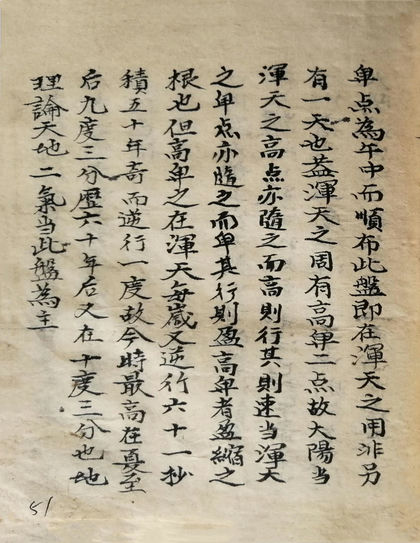 卑点為午中而順布此盤即在渾天之用非另
有一天也蓋渾天之周有高卑二点故太陽当
渾天之高点亦隨之而高則行其則速当渾天
之卑点亦隨之而卑其行則盈高卑者盈縮之
根也但高卑之在渾天每歲又逆行六十一抄
積五十年奇而逆行一度故今時最高在夏至
后九度三分歷六十年后又在十度三分也地
理論天地二氣当此盤為主
51